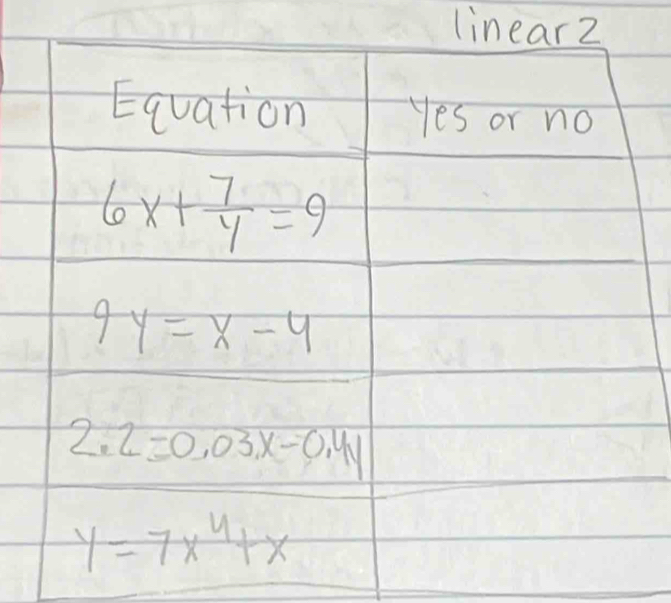 linear?
Equation
Yes or no
6x + 7/y = 9
9y = x - 4
2.2 = 0.03x - 0.4y
y = 7x⁴ + x